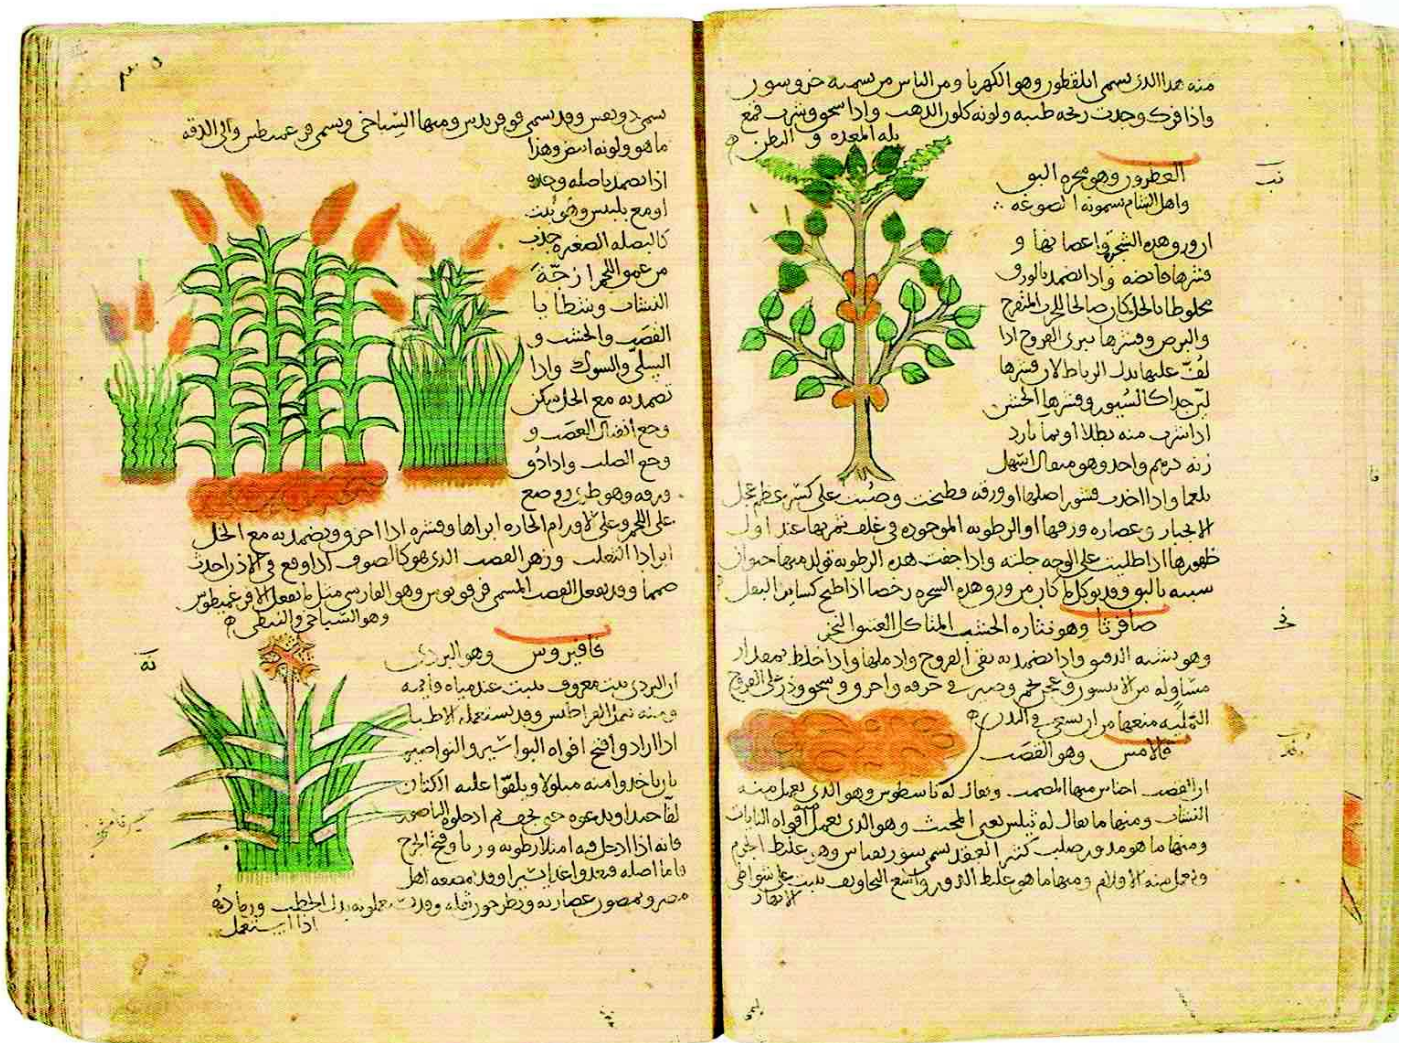 منه هذا الذى يسمى ايلقطور وهو الكهربا ومن الناس من يسميه خروسور
واذا فرك وجدت رىحه طيبه ولونه كلون الذهب واذا سحق وشرب قمع
بله المعده و البطن
وهو شجره البق
واهل الشام يسمونه
ان ورق هذه الشجره واغصانها و
قشرها قابضه واذا تضمد بالورق
مخلوطا بالخل كان صالحا للجرب المتقرح
والبرص وقشرها يبرى القروح اذا
لف عليها بدل الرباط لان قشرها
لين جدا كالسيور وقشرها الخشن
اذا شرب منه بطلا او بما بارد
زنه درهم واحد وهو مثقال اسهل
بلغما واذا اخذت قشور اصلها او ورقه وطبخت وصبت على كسر عظم عجل
الانجبار وعصاره ورقها او الرطوبه الموجوده فى غلف ثمرها عند اول
ظهورها اذا طليت على الوجه جلته واذا جفت هذه الرطوبه تولد منها حيوان
شبيه بالبق وقد يوكل ما كان من ورق هذه الشجره رخصا اذا طبخ كساير البقل
وهو نثاره الخشب المتاكل العتيق النخر
وهو شبيه الدقيق واذا تضمد به نقى القروح وادملها واذا خلط بمقدار
مساو له من الانيسون وعجن بخمر وصير فى خرقه واحرق وسحق وذر على القروح
النمليه منعها من ان يسعى فى البدن
قالامس وهو القصب
ان القصب اجناس منها المصمت ويقال له ناسطوس وهو الذى يعمل منه
النشاب ومنها ما يقال له ثيلس يعنى المخنث وهو الذى يعمل افواه النايات
ومنها ما هو مدور صلب كثير العقد يسمى سورنغياس وهو غليظ الجرم
ويعمل منه الاقلام ومنها ما هو غليظ الدور واسع التجاويف ينبت على شواطى
الانهار
يسمى دونقس وقد يسمى قوفرندس ومنها السياخى ويسمى فرغميطس والى الدقه
ما هو ولونه ابيض وهذا
اذا تضمد باصله وحده
او مع بلبس وهو نبت
كالبصله الصغيره جذب
من عمق اللحم ازجه
النشاب وشظايا
القصب والخشب و
السلى والشوك واذا
تضمد به مع الخل سكن
وجع انفتال العصب و
وجع الصلب واذا دق
ورقه وهو طرى ووضع
على اللحم وعلى الاورام الحاره ابراها وقشره اذا احرق وتضمد به مع الخل
ابرا داء الثعلب وزهر القصب الذى هو كالصوف اذا وقع فى الاذن احدث
صمما وقد يفعل القصب المسمى قوفوس وهو الفارسى مثل ما يفعل الافرغميطوس
وهو السياخى والنبطى
قافيروس وهو البردى
ان البردى نبت معروف ينبت عند مياه
ومنه تعمل القراطيس وقد يستعمله الاطبا
اذا ارادوا فتح افواه البواسير والنواصير
بان ياخذوا منه مبلولا ويلقوا عليه الكتان
لفا جيدا ويدعوه حتى يجف ثم ادخلوه الناصور
فانه اذا ادخل فيه امتلا رطوبه وربا وفتح الجرح
فاما اصله فيغذوا غذا يسيرا وقد تمضغه اهل
مصر ويمصون عصارته ويطرحون ثفله وقد يستعملونه بدل الحطب ورماده
اذا استعمل